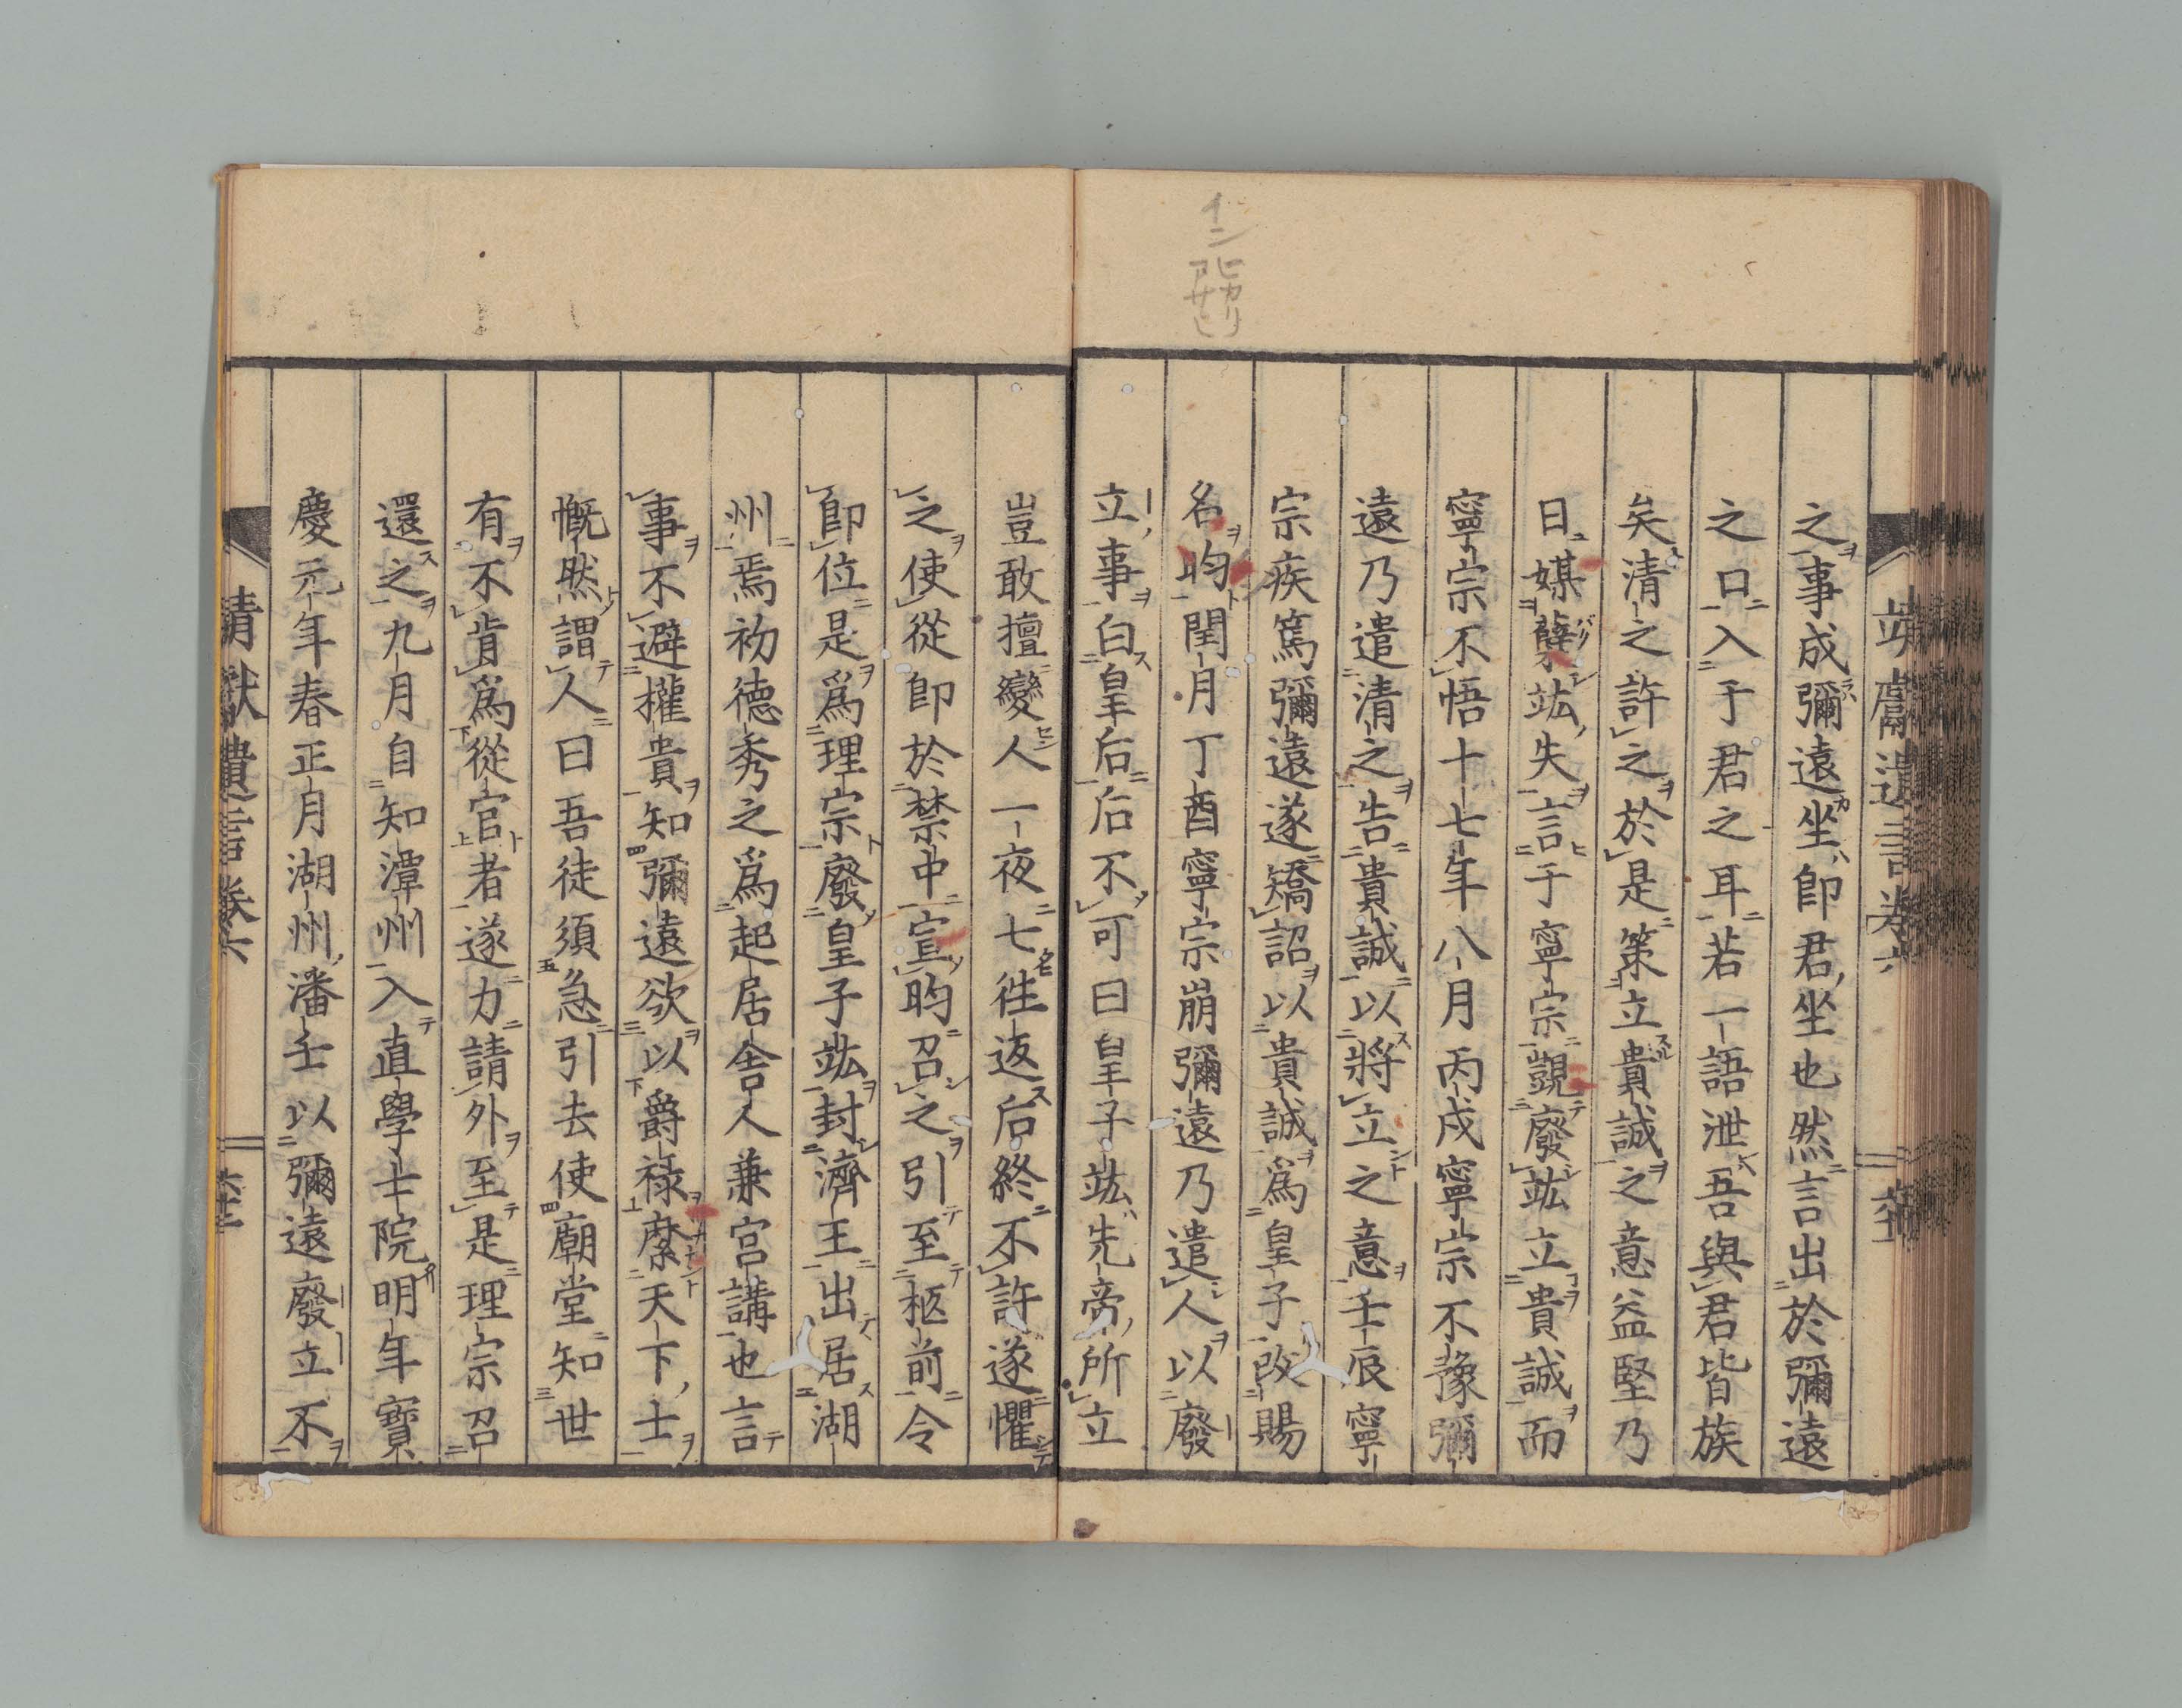 之事成彌遠坐即君坐也然言出於彌遠
之口入于君之耳若一語泄吾與君皆族
矣清之許之於是策立貴誠之意益堅乃
日媒糵竑失言于寧宗覬廢竑立貴誠而
寧宗不悟十七年八月丙戌寧宗不豫彌
遠乃遣清之告貴誠以將立之意壬辰寧
宗疾篤彌遠遂矯詔以貴誠爲皇子改賜
名昀閏月丁酉寧宗崩彌遠乃遣人以廢
立事白皇后后不可曰皇子竑先帝所立
豈敢擅變人一夜七徃返后終不許遂懼
之使從卽於禁中宣昀召之引至柩前令
卽位是爲理宗廢皇子竑封濟王出居湖
州焉初德秀之爲起居舎人兼宮講也言
事不避權貴知彌遠欲以爵禄縻天下士
慨然謂人曰吾徒須急引去使廟堂知世
有不肯爲從官者遂力請外至是理宗召
還之九月自知潭州入直學士院明年寳
慶元年春正月湖州潘壬以彌遠廢立不
靖獻遺言卷六